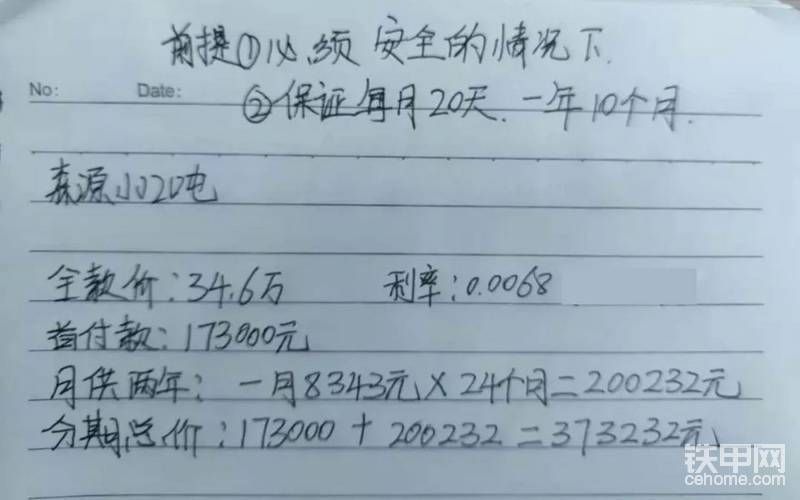 前提①必须安全的情况下.
No: Date: ②保证每月20天.一年10个月.
森源小20吨
全款价:34.6万 利率:0.0068
首付款:173000元
月供两年:一月8343元×24个月=200232元
分期总价:173000+200232=373232元.
铁甲网
cehome.com